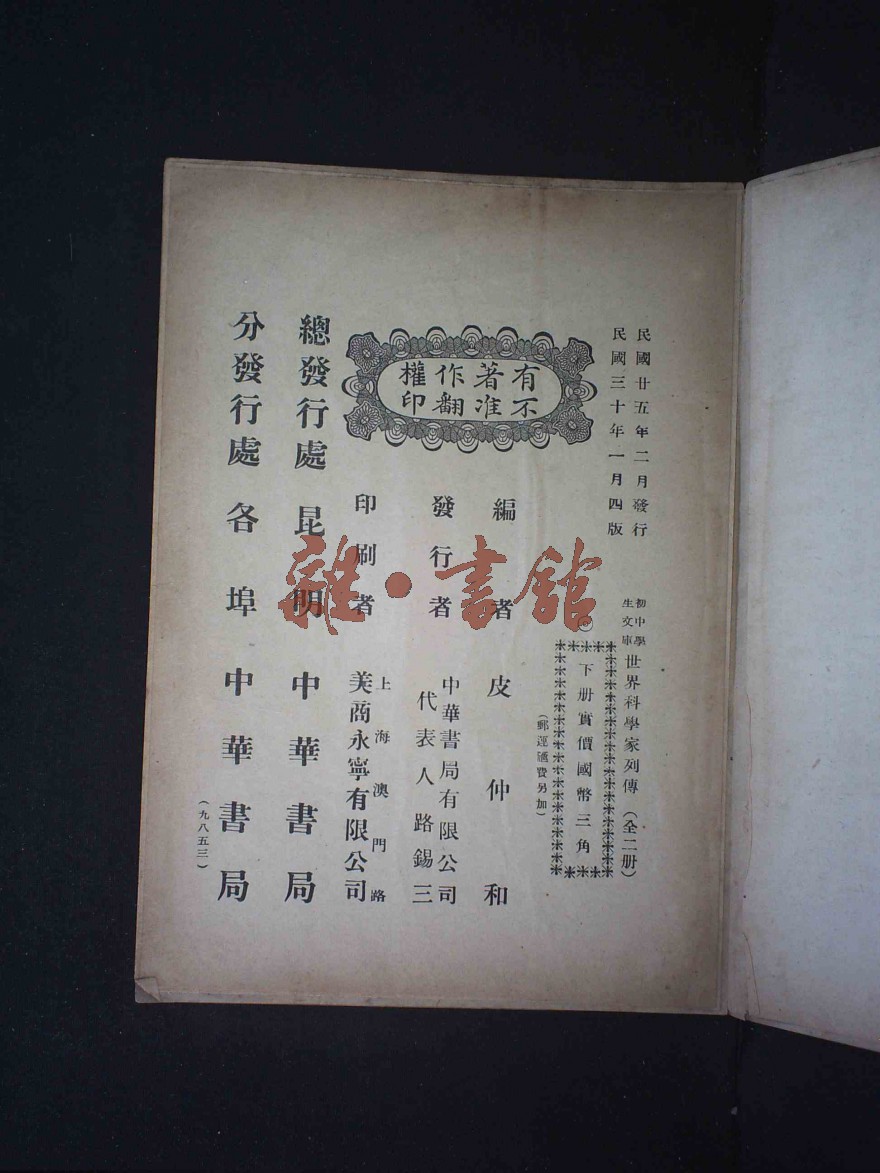 民國廿五年二月發行
民國三十年一月四版
初中學
生文庫
世界科學家列傳（全二册）
◎下册實價國幣三角
（郵運匯費另加）
有著作權
不准翻印
編者 皮仲和
發行者 中華書局有限公司
代表人路錫三
印刷者 上海澳門路
美商永寧有限公司
總發行處 昆明中華書局
分發行處 各埠中華書局
（九八五三）
雜·書館